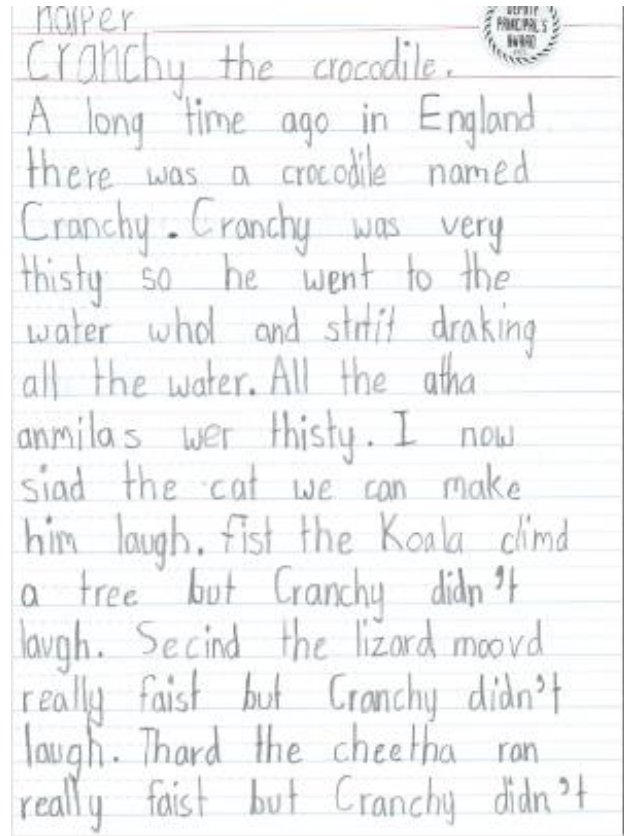 Harper
DEPUTY
PRINCIPAL'S
AWARD
Cranchy the crocodile.
A long time ago in England
there was a crocodile named
Cranchy. Cranchy was very
thisty so he went to the
water whol and strtit draking
all the water. All the atha
anmilas wer thisty. I now
siad the cat we can make
him laugh. fist the Koala climd
a tree but Cranchy didn't
laugh. Secind the lizard moovd
really faist but Cranchy didn't
laugh. Thard the cheetha ran
really faist but Cranchy didn't